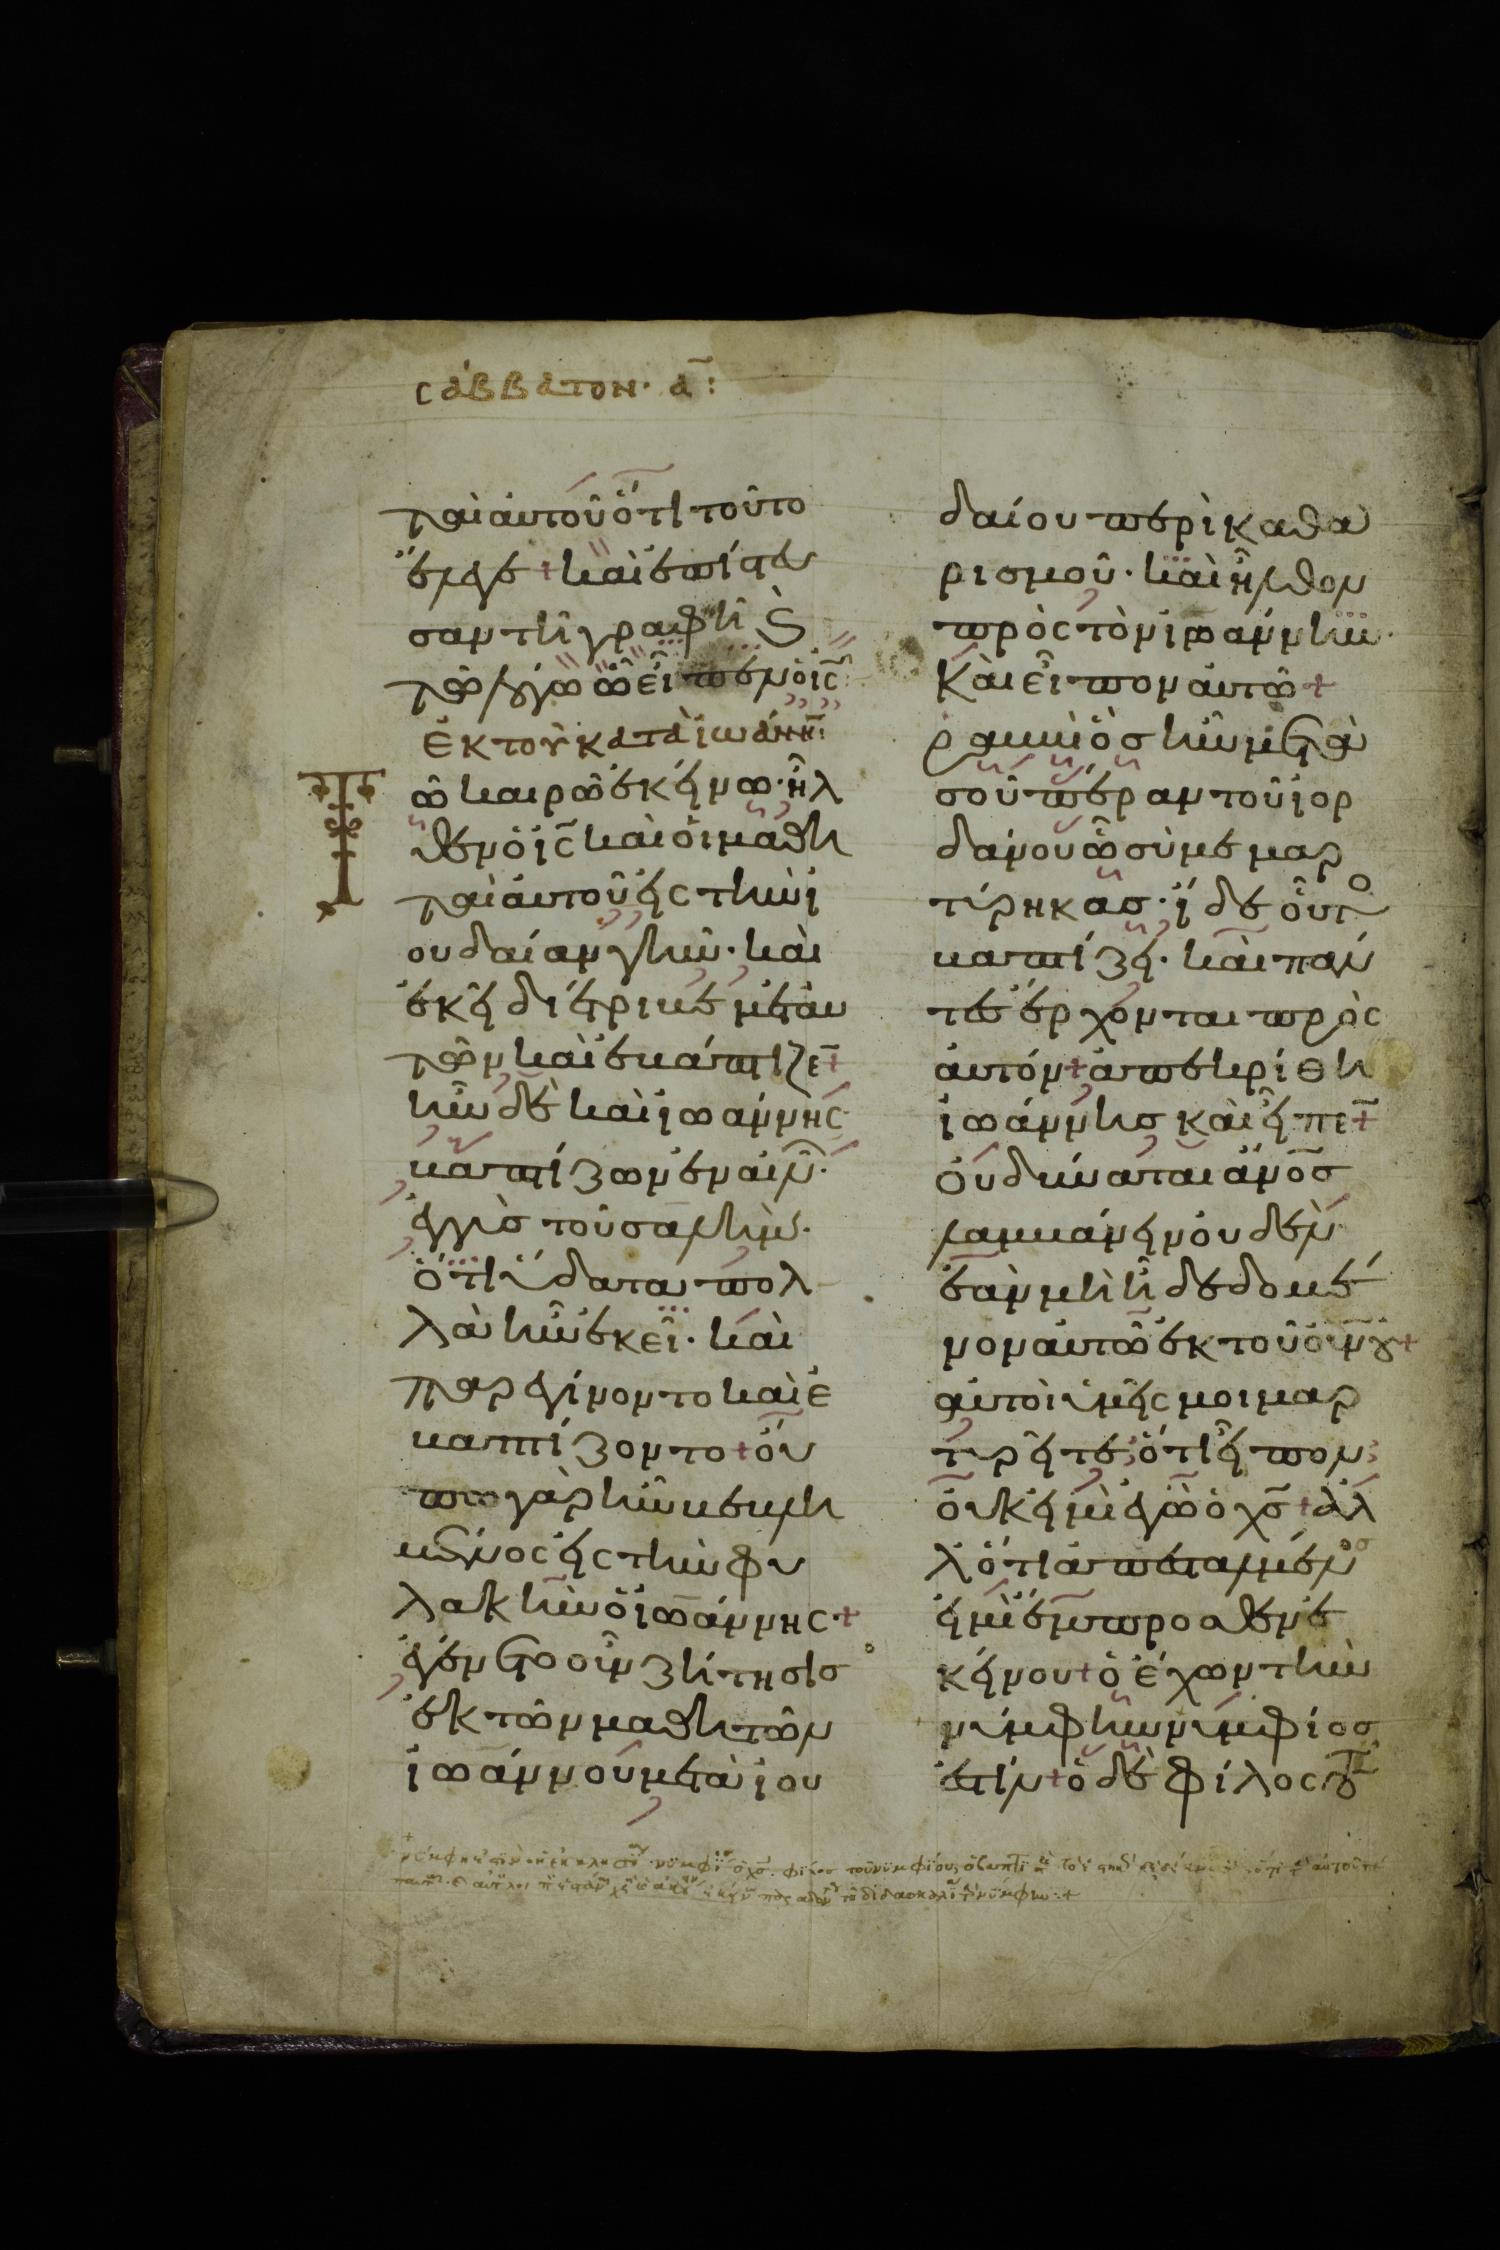 σάββατον· α̅:
ται αυτοῦ ὅτι τοῦτο
ἔλεγε + καὶ ἐπίστευ
σαν τῆ γραφῆ καὶ
τῶ λόγω ὧ εἶπεν ὁ ι̅ς̅
ἐκ τοῦ κατὰ ἰωάνν:
Τῶ καιρῶ ἐκείνω· ἦλ
θεν ὁ ι̅ς̅ καὶ οἱ μαθη
ταὶ αυτοῦ εἰς τὴν ἰ
ουδαίαν γῆν· καὶ
ἐκεῖ διέτριβε μετ' αυ
τῶν καὶ ἐβάπτιζε +
ἦν δὲ καὶ ἰωάννης
βαπτίζων ἐν αἰνῶν·
ἐγγὺς τοῦ σαλήμ·
ὅτι ὕδατα πολ
λὰ ἦν ἐκεῖ· καὶ
παρεγίνοντο καὶ ἐ
βαπτίζοντο + οὔ
πω γὰρ ἦν βεβλη
μένος εἰς τὴν φυ
λακὴν ὁ ἰωάννης +
ἐγένετο οὖν ζήτησις
ἐκ τῶν μαθητῶν
ἰωάννου μετὰ ἰου
δαίου περὶ καθα
ρισμοῦ· καὶ ἦλθον
πρὸς τὸν ἰωάννην·
καὶ εἶπον αυτῶ +
ραββὶ ὃς ἦν μετὰ
σοῦ πέραν τοῦ ἰορ
δάνου ὧ σὺ με μαρ
τύρηκας· ἴδε οὗτο
βαπτίζει· καὶ πάν
τες ἔρχονται πρὸς
αυτόν + ἀπεκρίθη
ἰωάννης καὶ εἶπε +
ου δύναται ἄνο̅σ
λαμβάνειν ουδὲν
ἐὰν μὴ ἦ δεδομέ
νον αυτῶ ἐκ τοῦ ουνου +
αυτοὶ ὑμεῖς μοι μαρ
τυρεῖτε ὅτι εἶπον
ουκ εἰμὶ ἐγὼ ὁ χ̅σ̅ + ἀλ
λ' ὅτι ἀπεσταλμένος
εἰμὶ ἔμπροσθεν ἐ
κείνου + ὁ ἔχων τὴν
νύμφην νυμφίος
ἐστίν + ὁ δὲ φίλος τοῦ